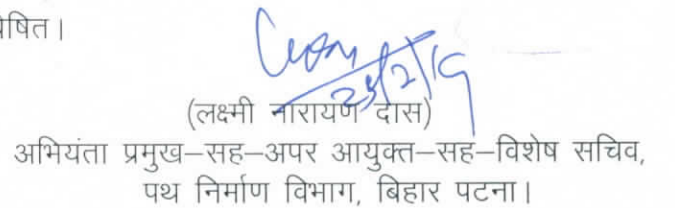 प्रेषित।
25/2/19
(लक्ष्मी नारायण दास)
अभियंता प्रमुख–सह–अपर आयुक्त–सह–विशेष सचिव,
पथ निर्माण विभाग, बिहार पटना।